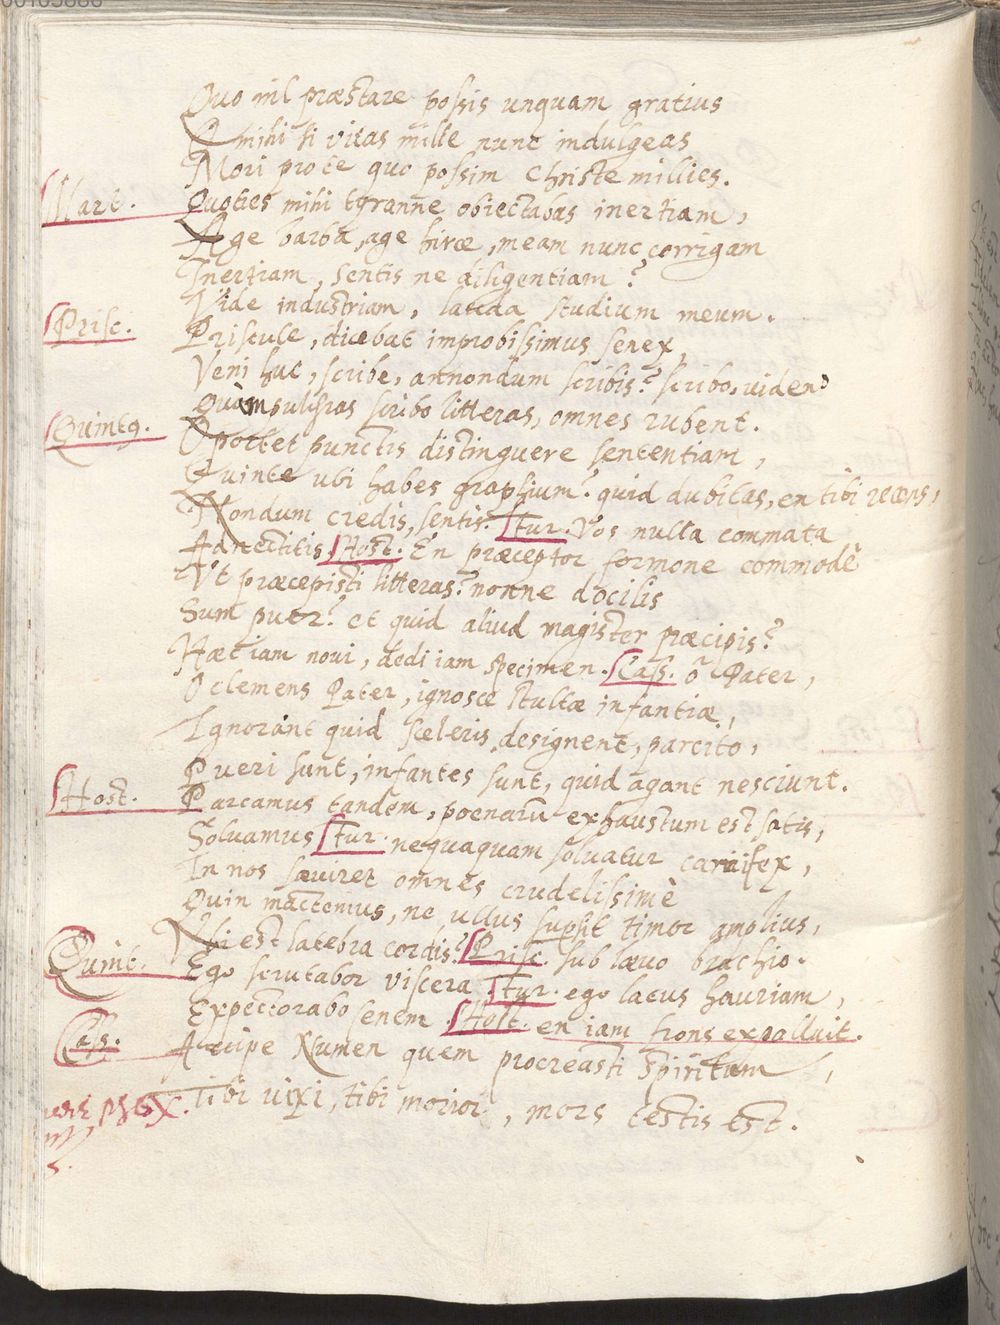 Quo nil præstare possis unquam gratius
O mihi si vitas mille nunc indulgeas
Mori pro te quo possim Christe millies.
Mart. Quoties mihi tyranne obiectabas inertiam,
Age barba, age hirce, meam nunc corrigam
Inertiam, sentis ne diligentiam?
Vide industriam, lauda studium meum.
Prisc. Priscule, dicebat improbissimus senex,
Veni huc, scribe, an nondum scribis? scribo, viden?
Quàm pulchras scribo litteras, omnes rubent.
Quintq. Oportet punctis distinguere sententiam,
Quinte ubi habes graphium? quid dubitas, en tibi recens,
Nondum credis, sentis. Tur. Vos nulla commata
Adnectitis Host. En præceptor formone commodè
Vt præcepisti litteras? nonne docilis
Sum puer? et quid aliud magister præcipis?
Hæc iam noui, dedi iam specimen. Cass. ô Pater,
O clemens Pater, ignosce stultæ infantiæ,
Ignorant quid sceleris designent, parcito,
Pueri sunt, infantes sunt, quid agant nesciunt.
Host. Parcamus tandem, poenarū exhaustum est satis,
Soluamus Tur. nequaquam soluatur carnifex,
In nos sæviret omnes crudelissimè
Quin mactemus, ne ullus supsit timor amplius,
Quint. Vbi est latebra cordis? Prisc. sub lævo brachio.
Ego scrutabor viscera Tur. ego latus hauriam,
Expectorabo senem. Host. en iam frons expalluit.
Cass. Accipe Numen quem procreasti Spiritum,
Tibi uixi, tibi morior, mors testis est.